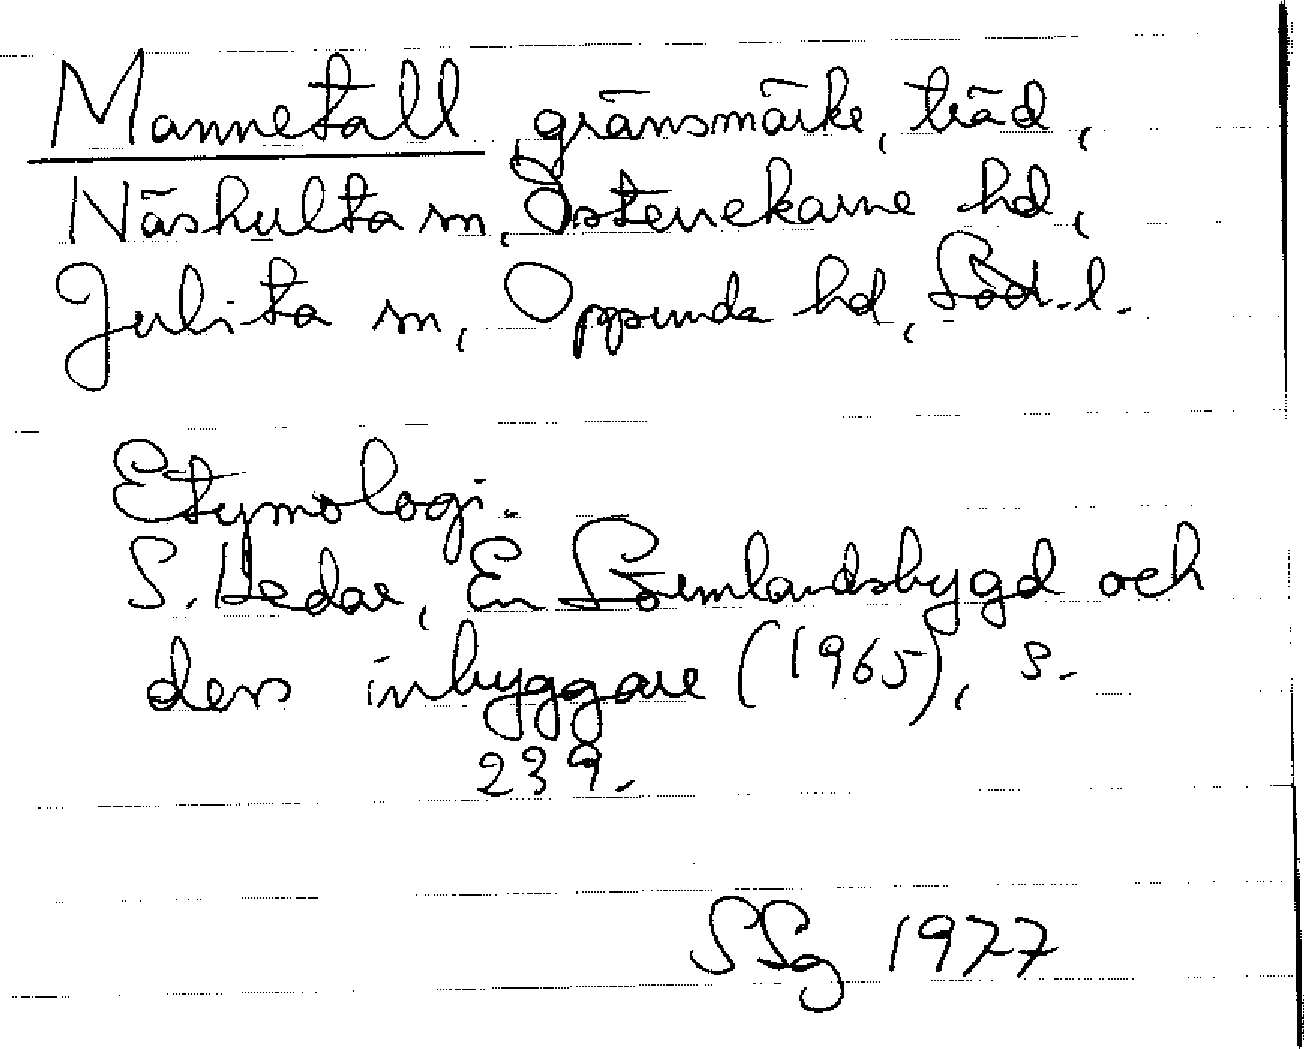 Mannetall gränsmärke, träd,
Näshulta sn, Österrekarne hd,
Julita sn, Oppunda hd, Söd.l.
Etymologi.
S. Hedar, En Sörmlandsbygd och
dess inbyggare (1965), s.
239.
SSg 1977